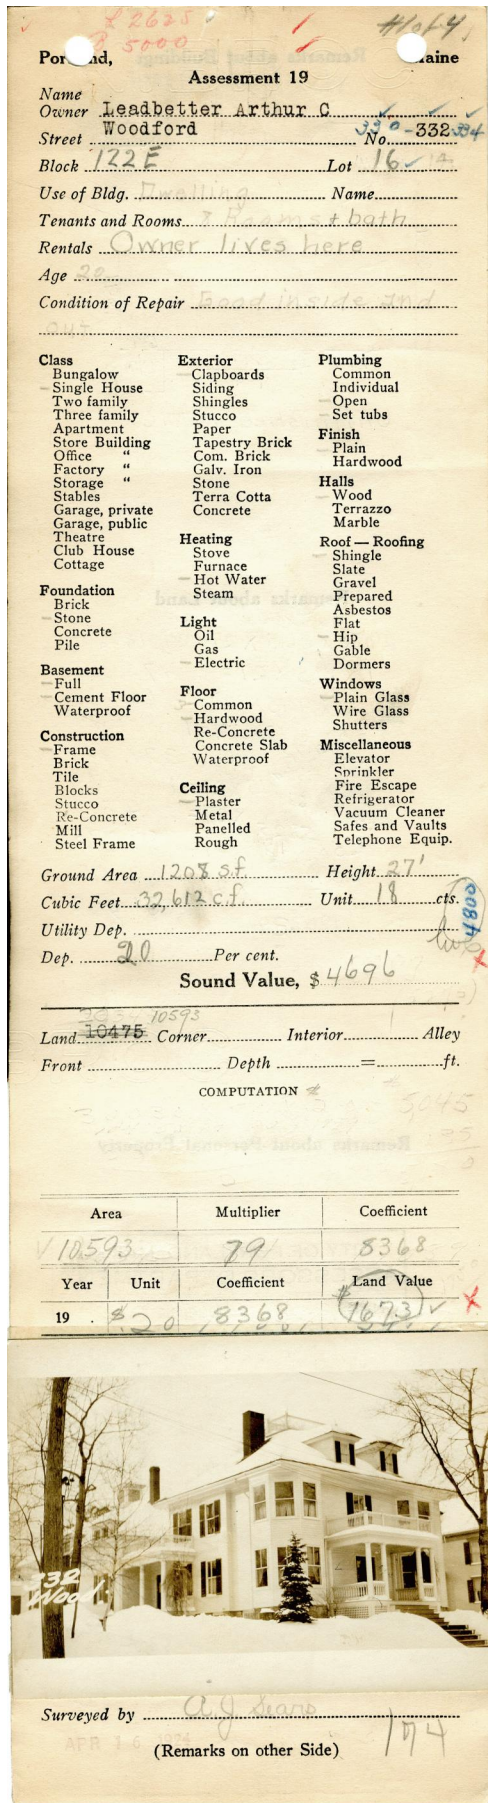 L 2625
B 5000
#1 of 4
Portland, Maine
Assessment 19
Name
Owner Leadbetter Arthur C
Woodford
Street No. 330-332-334
Block 122E Lot 16
Use of Bldg. Dwelling Name
Tenants and Rooms 8 Rooms + bath
Rentals Owner lives here
Age 20
Condition of Repair Good inside and
out
Class
Bungalow
Single House
Two family
Three family
Apartment
Store Building
Office "
Factory "
Storage "
Stables
Garage, private
Garage, public
Theatre
Club House
Cottage
Foundation
Brick
Stone
Concrete
Pile
Basement
Full
Cement Floor
Waterproof
Construction
Frame
Brick
Tile
Blocks
Stucco
Re-Concrete
Mill
Steel Frame
Exterior
Clapboards
Siding
Shingles
Stucco
Paper
Tapestry Brick
Com. Brick
Galv. Iron
Stone
Terra Cotta
Concrete
Heating
Stove
Furnace
Hot Water
Steam
Light
Oil
Gas
Electric
Floor
Common
Hardwood
Re-Concrete
Concrete Slab
Waterproof
Ceiling
Plaster
Metal
Panelled
Rough
Plumbing
Common
Individual
Open
Set tubs
Finish
Plain
Hardwood
Halls
Wood
Terrazzo
Marble
Roof — Roofing
Shingle
Slate
Gravel
Prepared
Asbestos
Flat
Hip
Gable
Dormers
Windows
Plain Glass
Wire Glass
Shutters
Miscellaneous
Elevator
Sprinkler
Fire Escape
Refrigerator
Vacuum Cleaner
Safes and Vaults
Telephone Equip.
Ground Area 1208 s.f. Height 27'
Cubic Feet 32,612 c.f. Unit 18 cts.
4800
Utility Dep.
Dep. 20 Per cent.
Sound Value, $ 4696
10593
Land 10475 Corner Interior Alley
Front Depth = ft.
COMPUTATION
5045
Area Multiplier Coefficient
10593 79 8368
Year Unit Coefficient Land Value
19 . $ .20 8368 $ 1673
332
Wood
Surveyed by A J Sears
174
(Remarks on other Side)